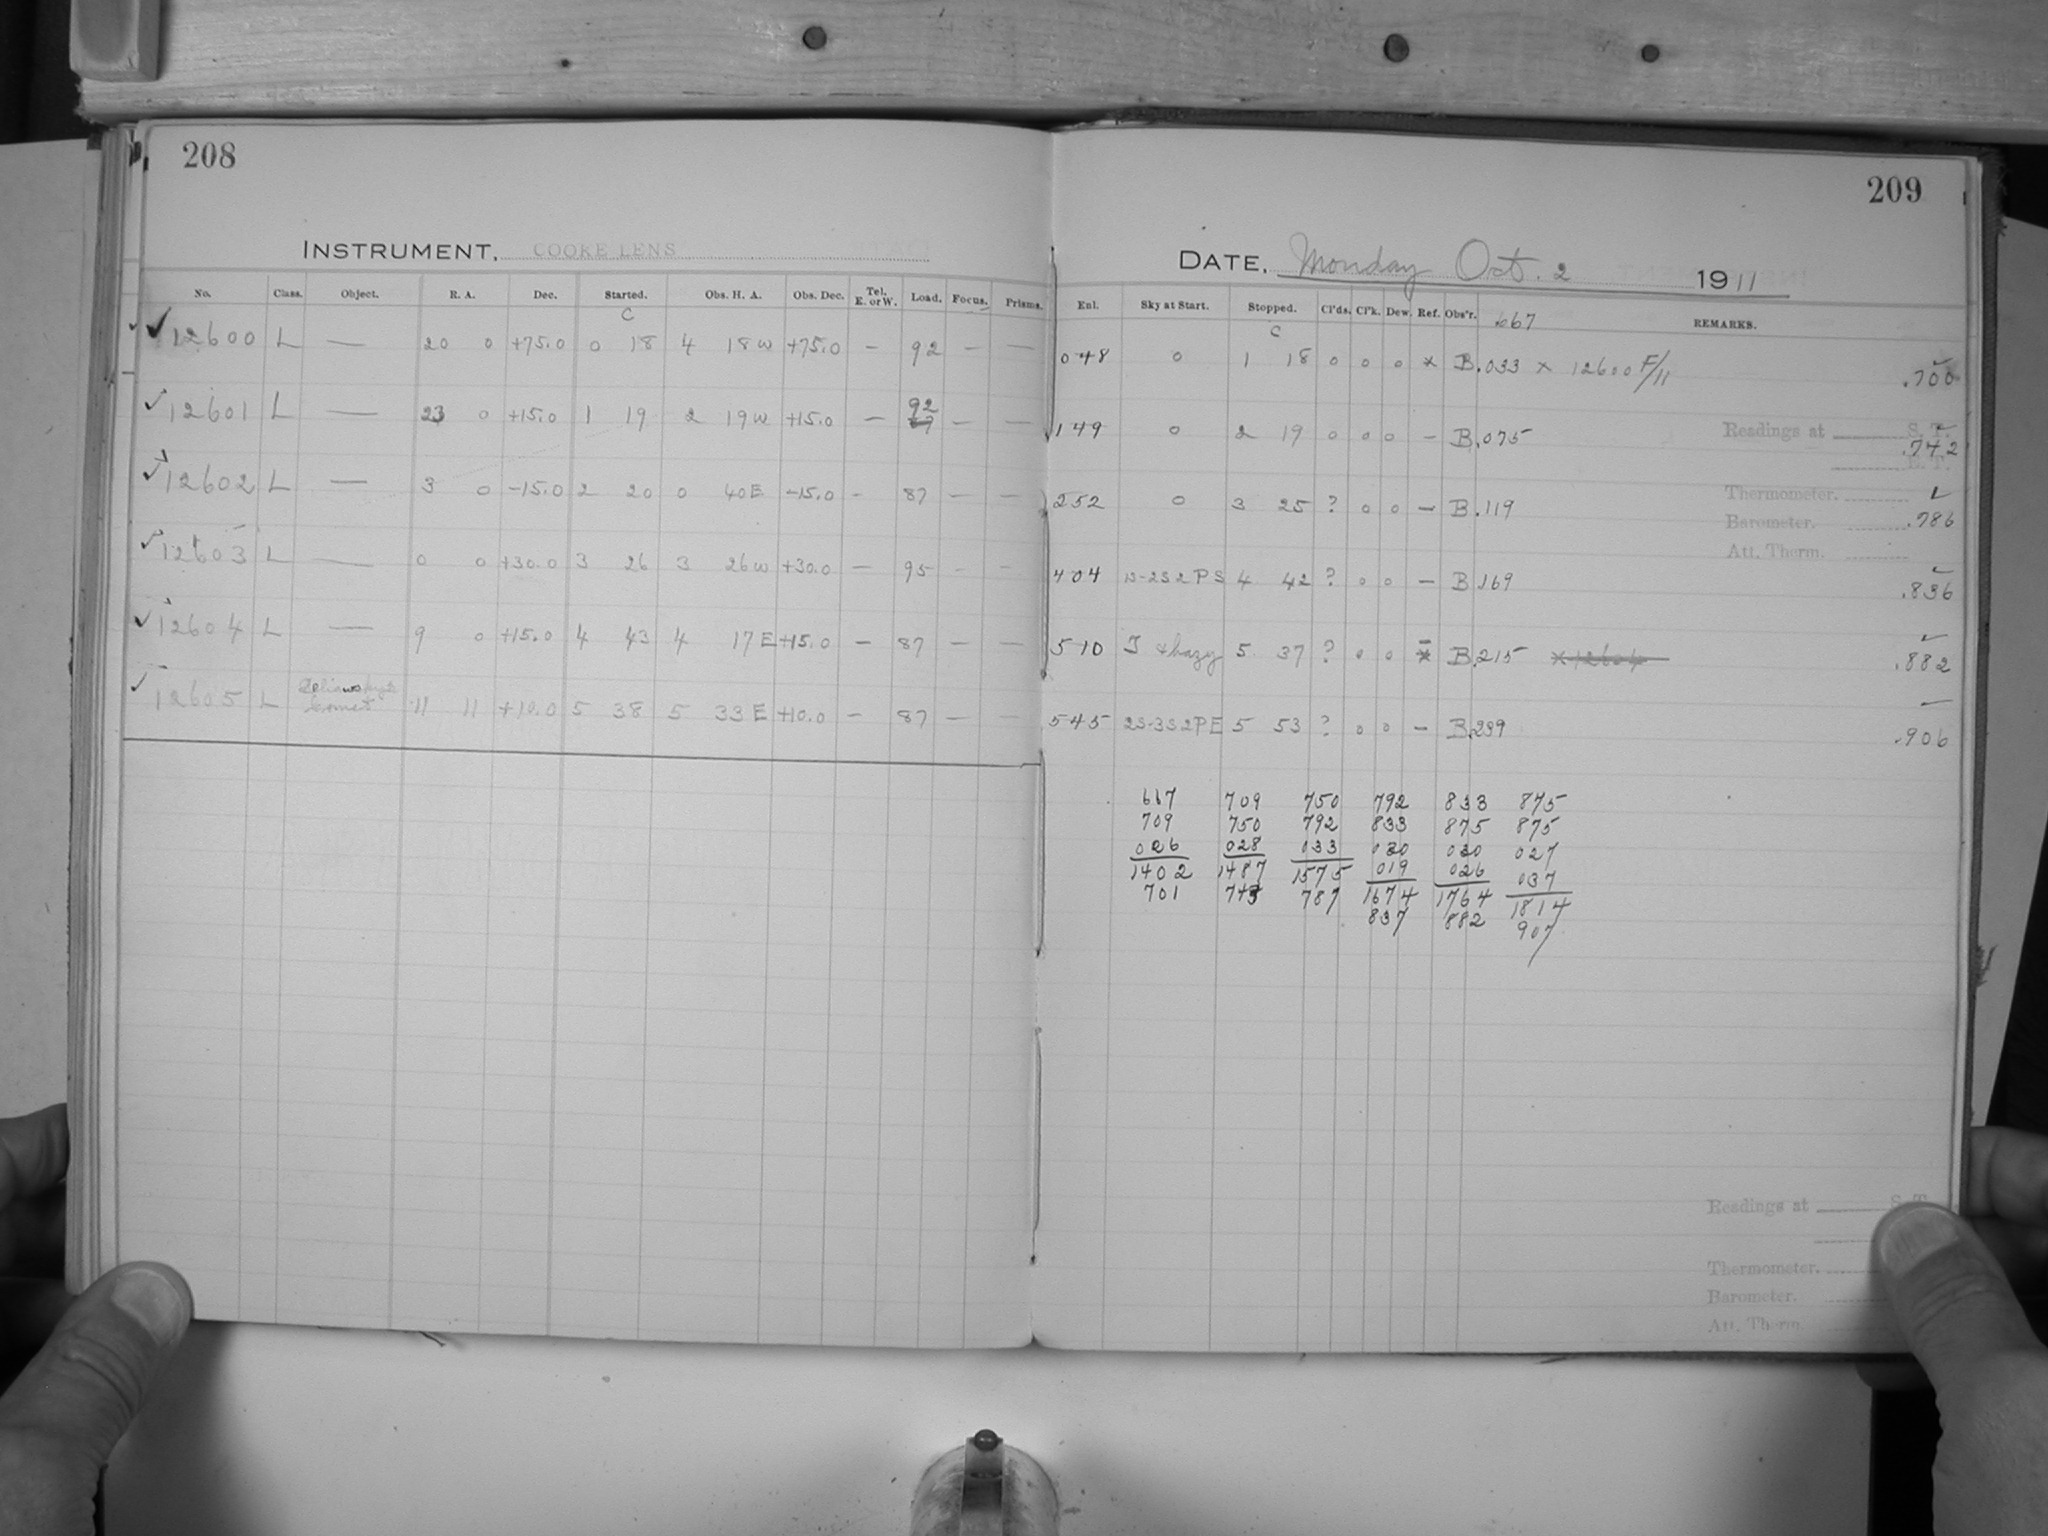 208
INSTRUMENT, COOKE LENS
No. Class. Object. R. A. Dec. Started. Obs. H. A. Obs. Dec. Tel. E. or W. Load. Focus. Prisms.
C
12600 L — 20 0 +75.0 0 18 4 18 W +75.0 — 92 — —
12601 L — 23 0 +15.0 1 19 2 19 W +15.0 — 92 — —
12602 L — 3 0 -15.0 2 20 0 40 E -15.0 - 87 — —
12603 L — 0 0 +30.0 3 26 3 26 W +30.0 — 95 - -
12604 L — 9 0 +15.0 4 43 4 17 E +15.0 — 87 — —
12605 L Comet 11 11 +10.0 5 38 5 33 E +10.0 — 87 — —
209
DATE, Monday Oct. 2 1911
Enl. Sky at Start. Stopped. Cl'ds. Cl'k. Dew. Ref. Obs'r. 667 REMARKS.
C
048 0 1 18 0 0 0 x B .033 x 12600 F/11 .700
149 0 2 19 0 0 0 — B .075 .742
Readings at S. T.
E. T.
252 0 3 25 ? 0 0 — B .119 .786
Thermometer.
Barometer.
Att. Therm.
404 2S2PS 4 42 ? 0 0 — B .169 .836
510 & hazy 5 37 ? 0 0 B .215 x 12604 .882
545 2S-3S2PE 5 53 ? 0 0 — B .239 .906
667 709 750 792 833 875
709 750 792 833 875 875
026 028 033 030 030 027
1402 1487 1575 019 026 037
701 743 787 1674 1764 1814
837 882 907
Readings at S. T.
Thermometer.
Barometer.
Att. Therm.